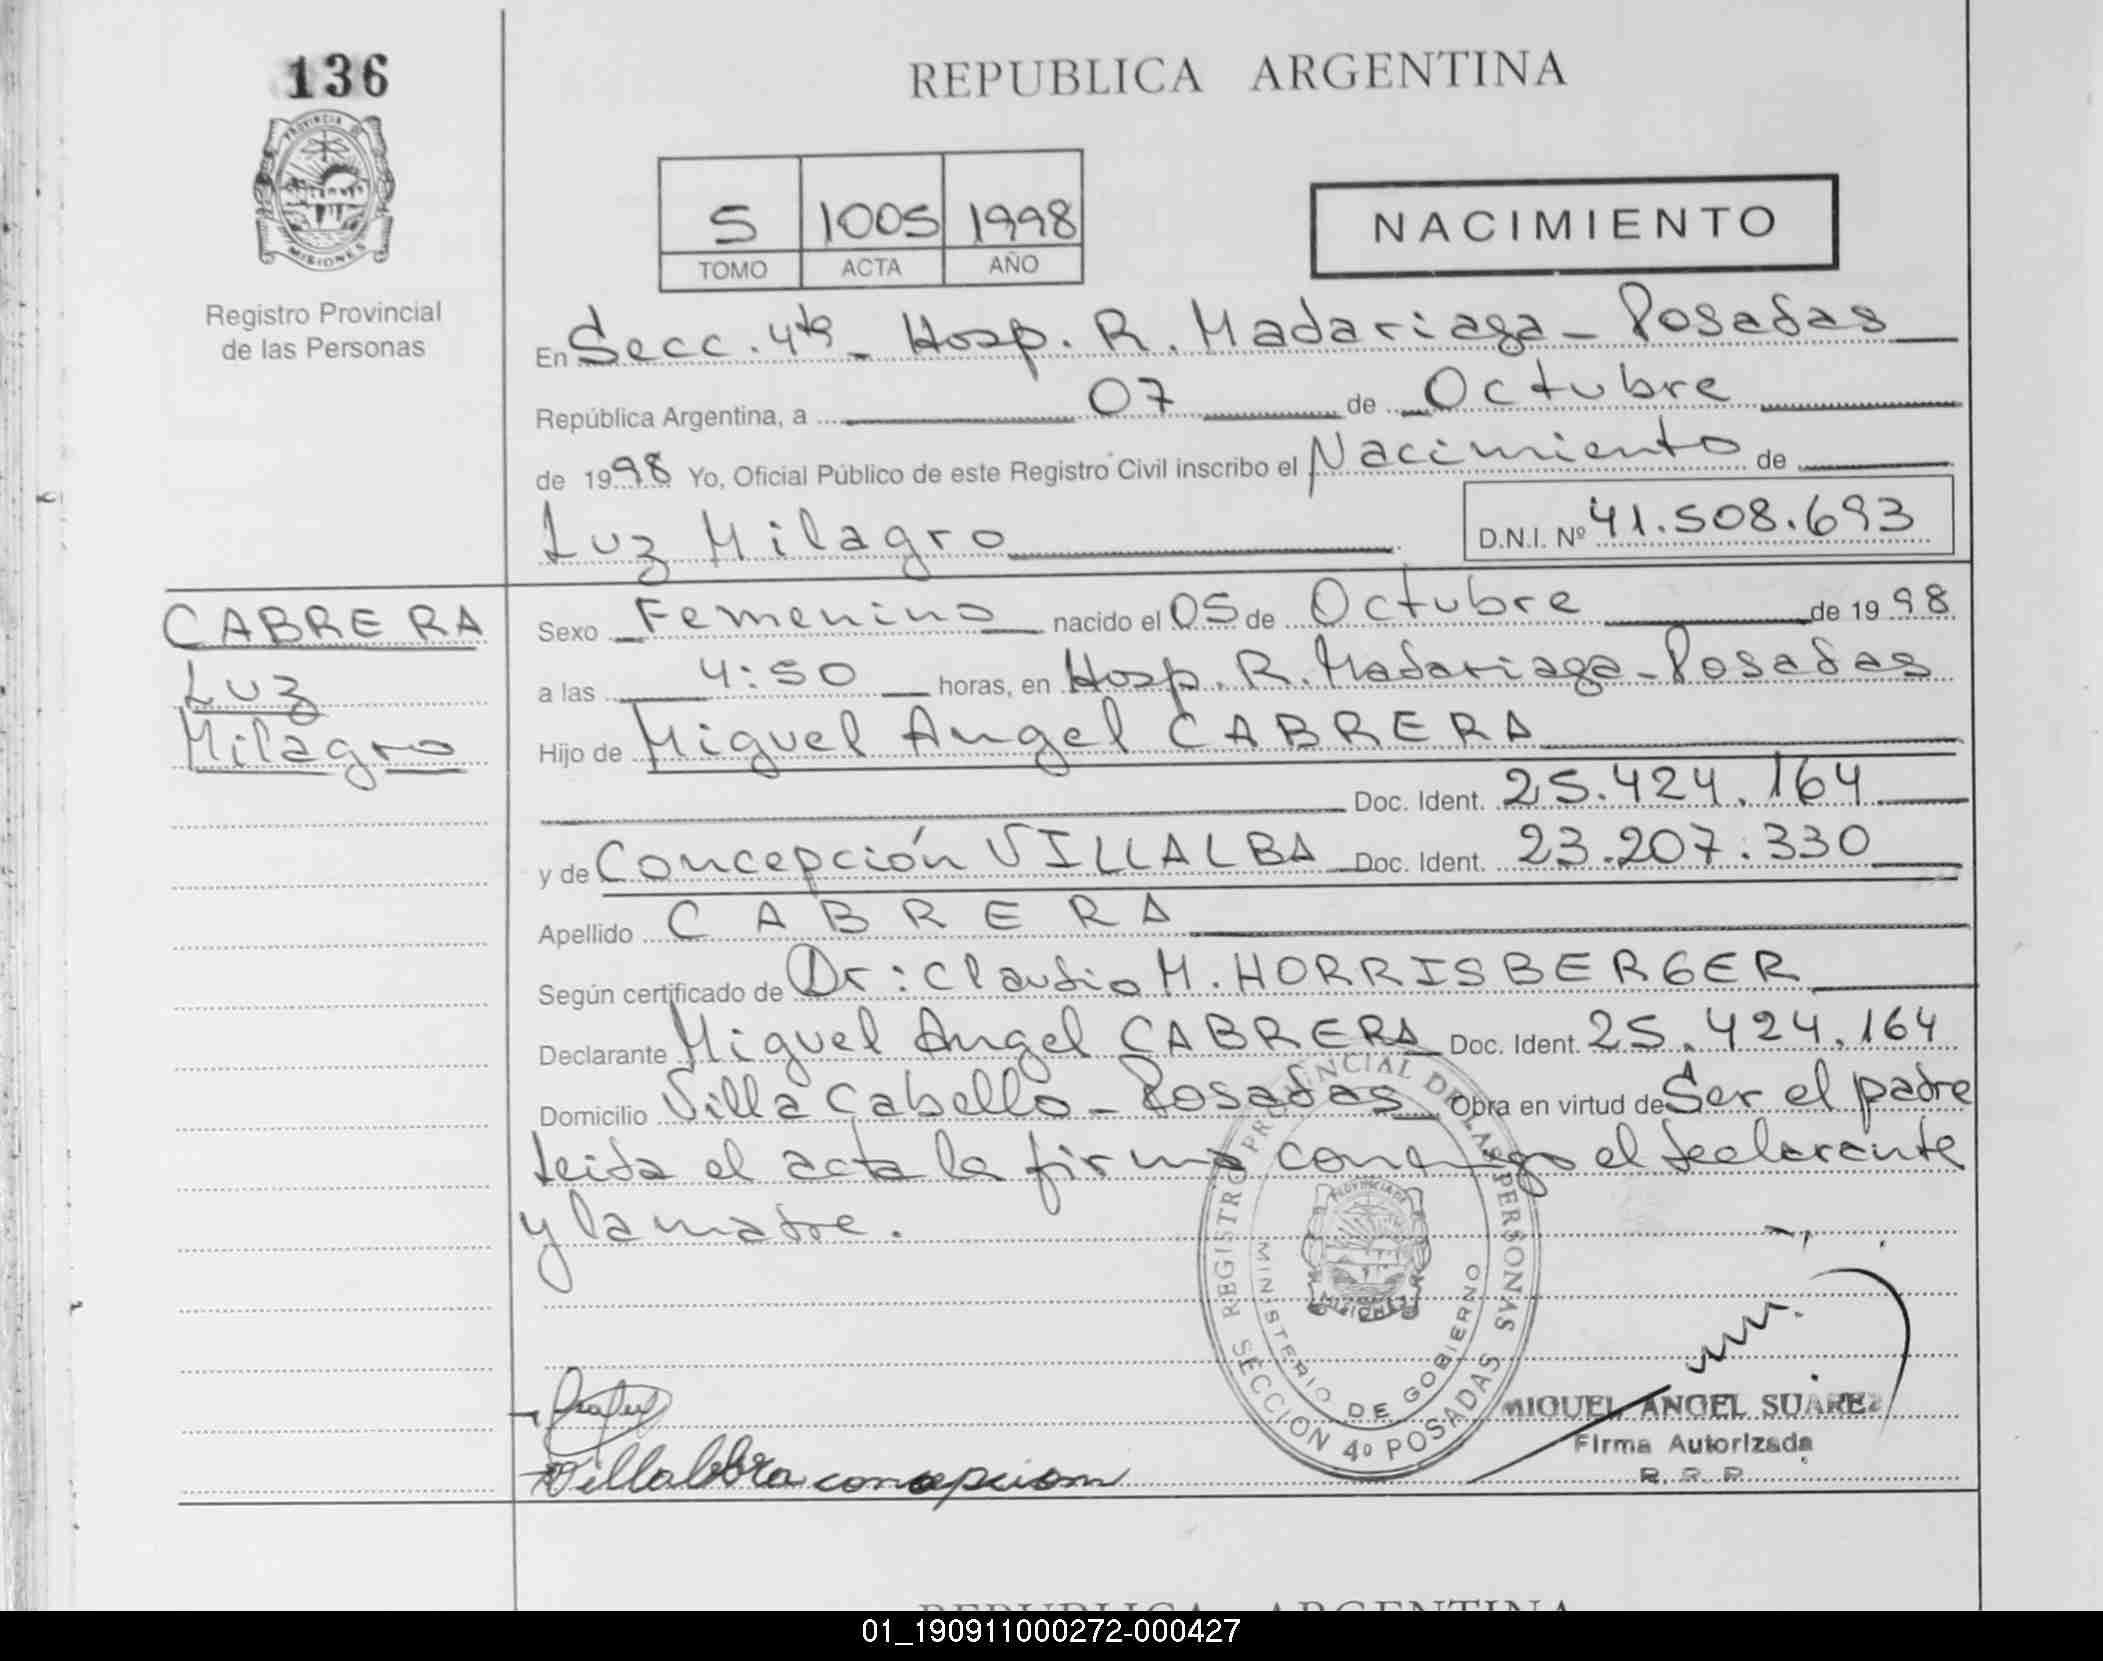 136
REPUBLICA ARGENTINA
PROVINCIA DE
MISIONES
Registro Provincial
de las Personas
5 1005 1998
TOMO ACTA AÑO
NACIMIENTO
En Secc. 4ta - Hosp. R. Madariaga - Posadas
República Argentina, a 07 de Octubre
de 1998 Yo, Oficial Público de este Registro Civil inscribo el Nacimiento de
Luz Milagro D.N.I. Nº 41.508.693
CABRERA
Luz
Milagro
Sexo Femenino nacido el 05 de Octubre de 1998
a las 4:50 horas, en Hosp. R. Madariaga - Posadas
Hijo de Miguel Angel CABRERA
Doc. Ident. 25.424.164
y de Concepción VILLALBA Doc. Ident. 23.207.330
Apellido CABRERA
Según certificado de Dr: Claudio M. HORRISBERGER
Declarante Miguel Angel CABRERA Doc. Ident. 25.424.164
Domicilio Villa Cabello - Posadas Obra en virtud de Ser el padre
Leida el acta la firma conmigo el declarante
y la madre.
REGISTRO PROVINCIAL DE LAS PERSONAS
MINISTERIO DE GOBIERNO
SECCION 4º POSADAS
PROVINCIA DE
MISIONES
MIGUEL ANGEL SUAREZ
Firma Autorizada
Villalbra concepcion
REPUBLICA ARGENTINA
01_190911000272-000427